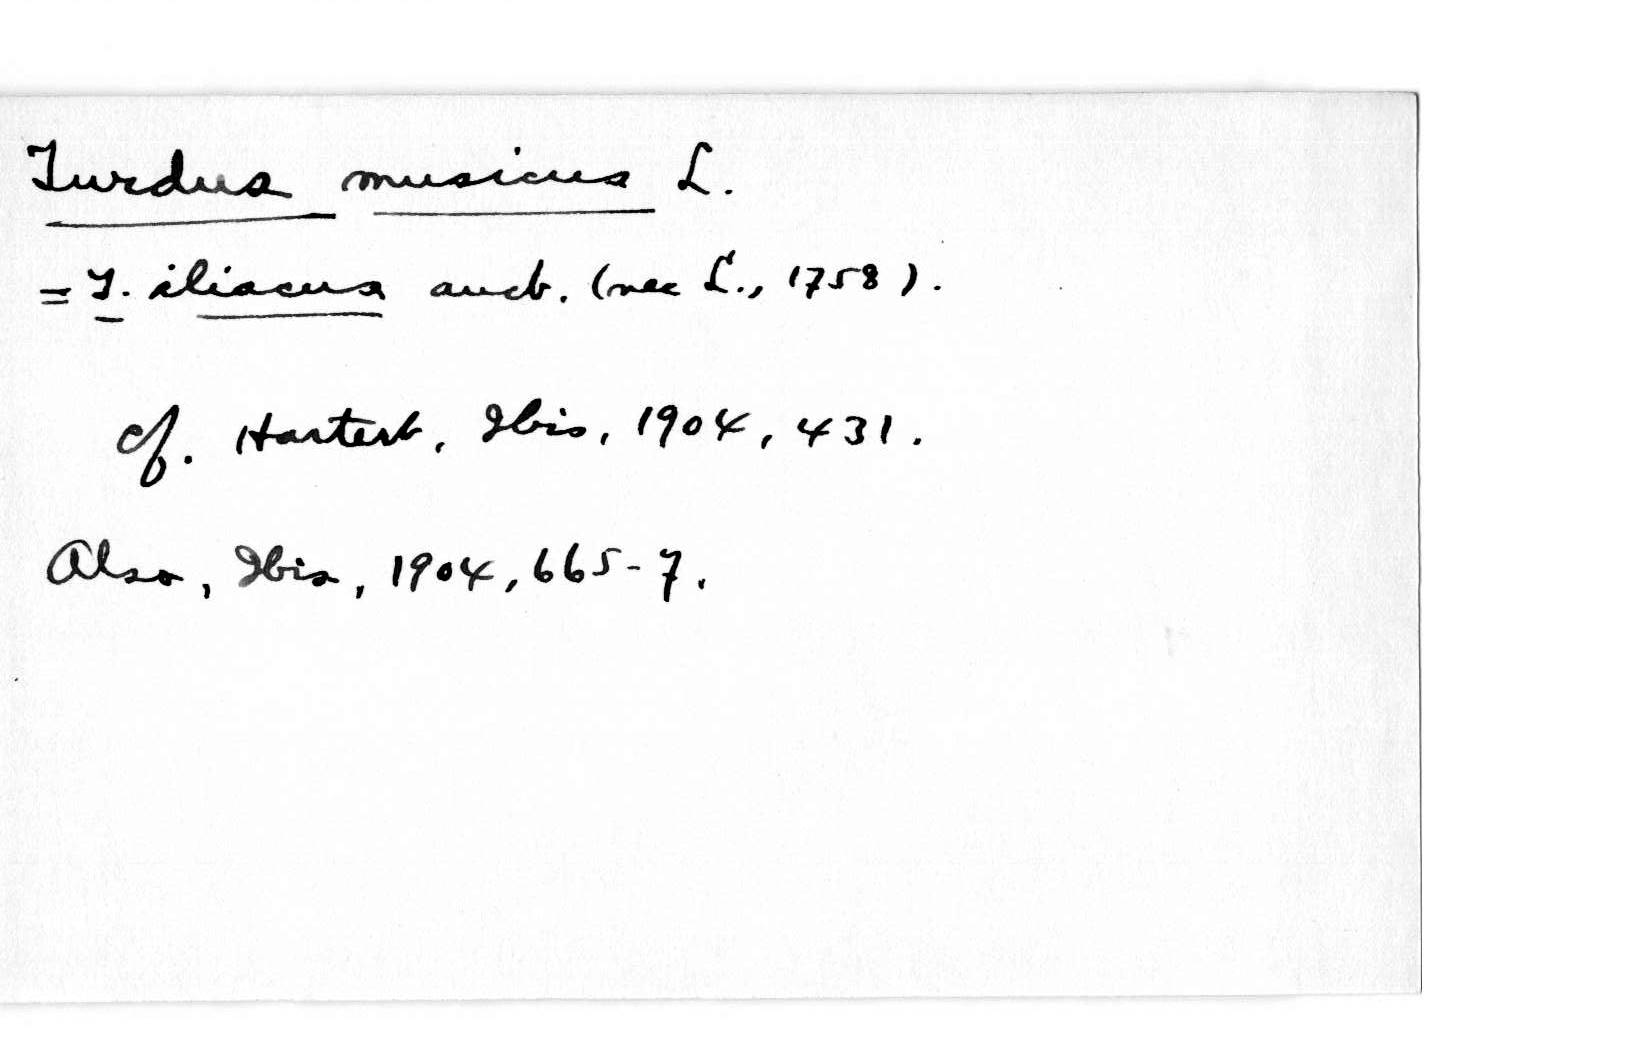 Turdus musicus L.
= T. iliacus auct. (nec L., 1758).
cf. Hartert, Ibis, 1904, 431.
Also, Ibis, 1904, 665-7.